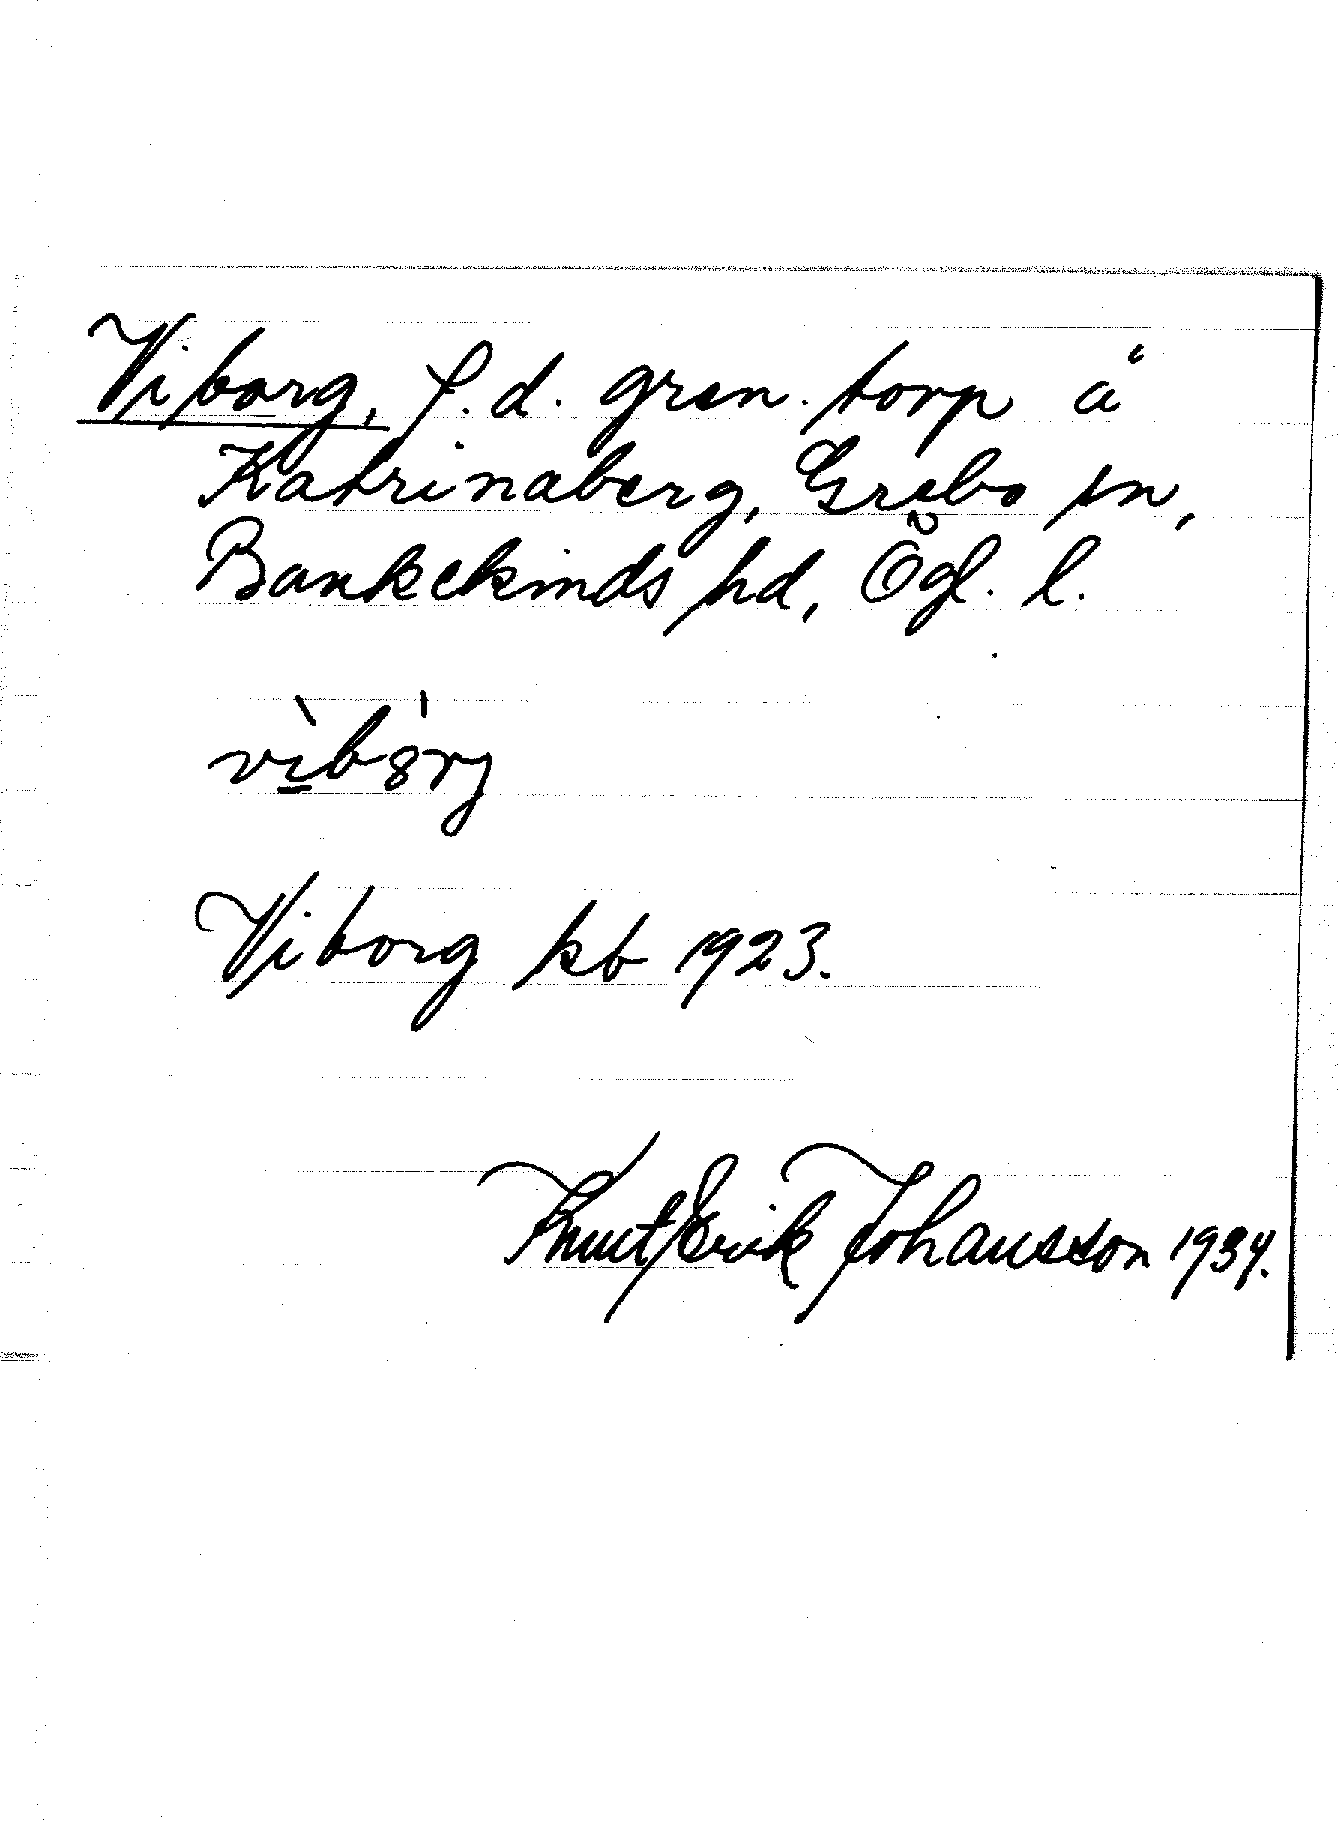 Viborg, f.d. gren. torp å
Katrinaberg, Grebo sn,
Bankekinds hd, Ögl. l.
Viborg kb 1923.
Knut Erik Johansson 1934.